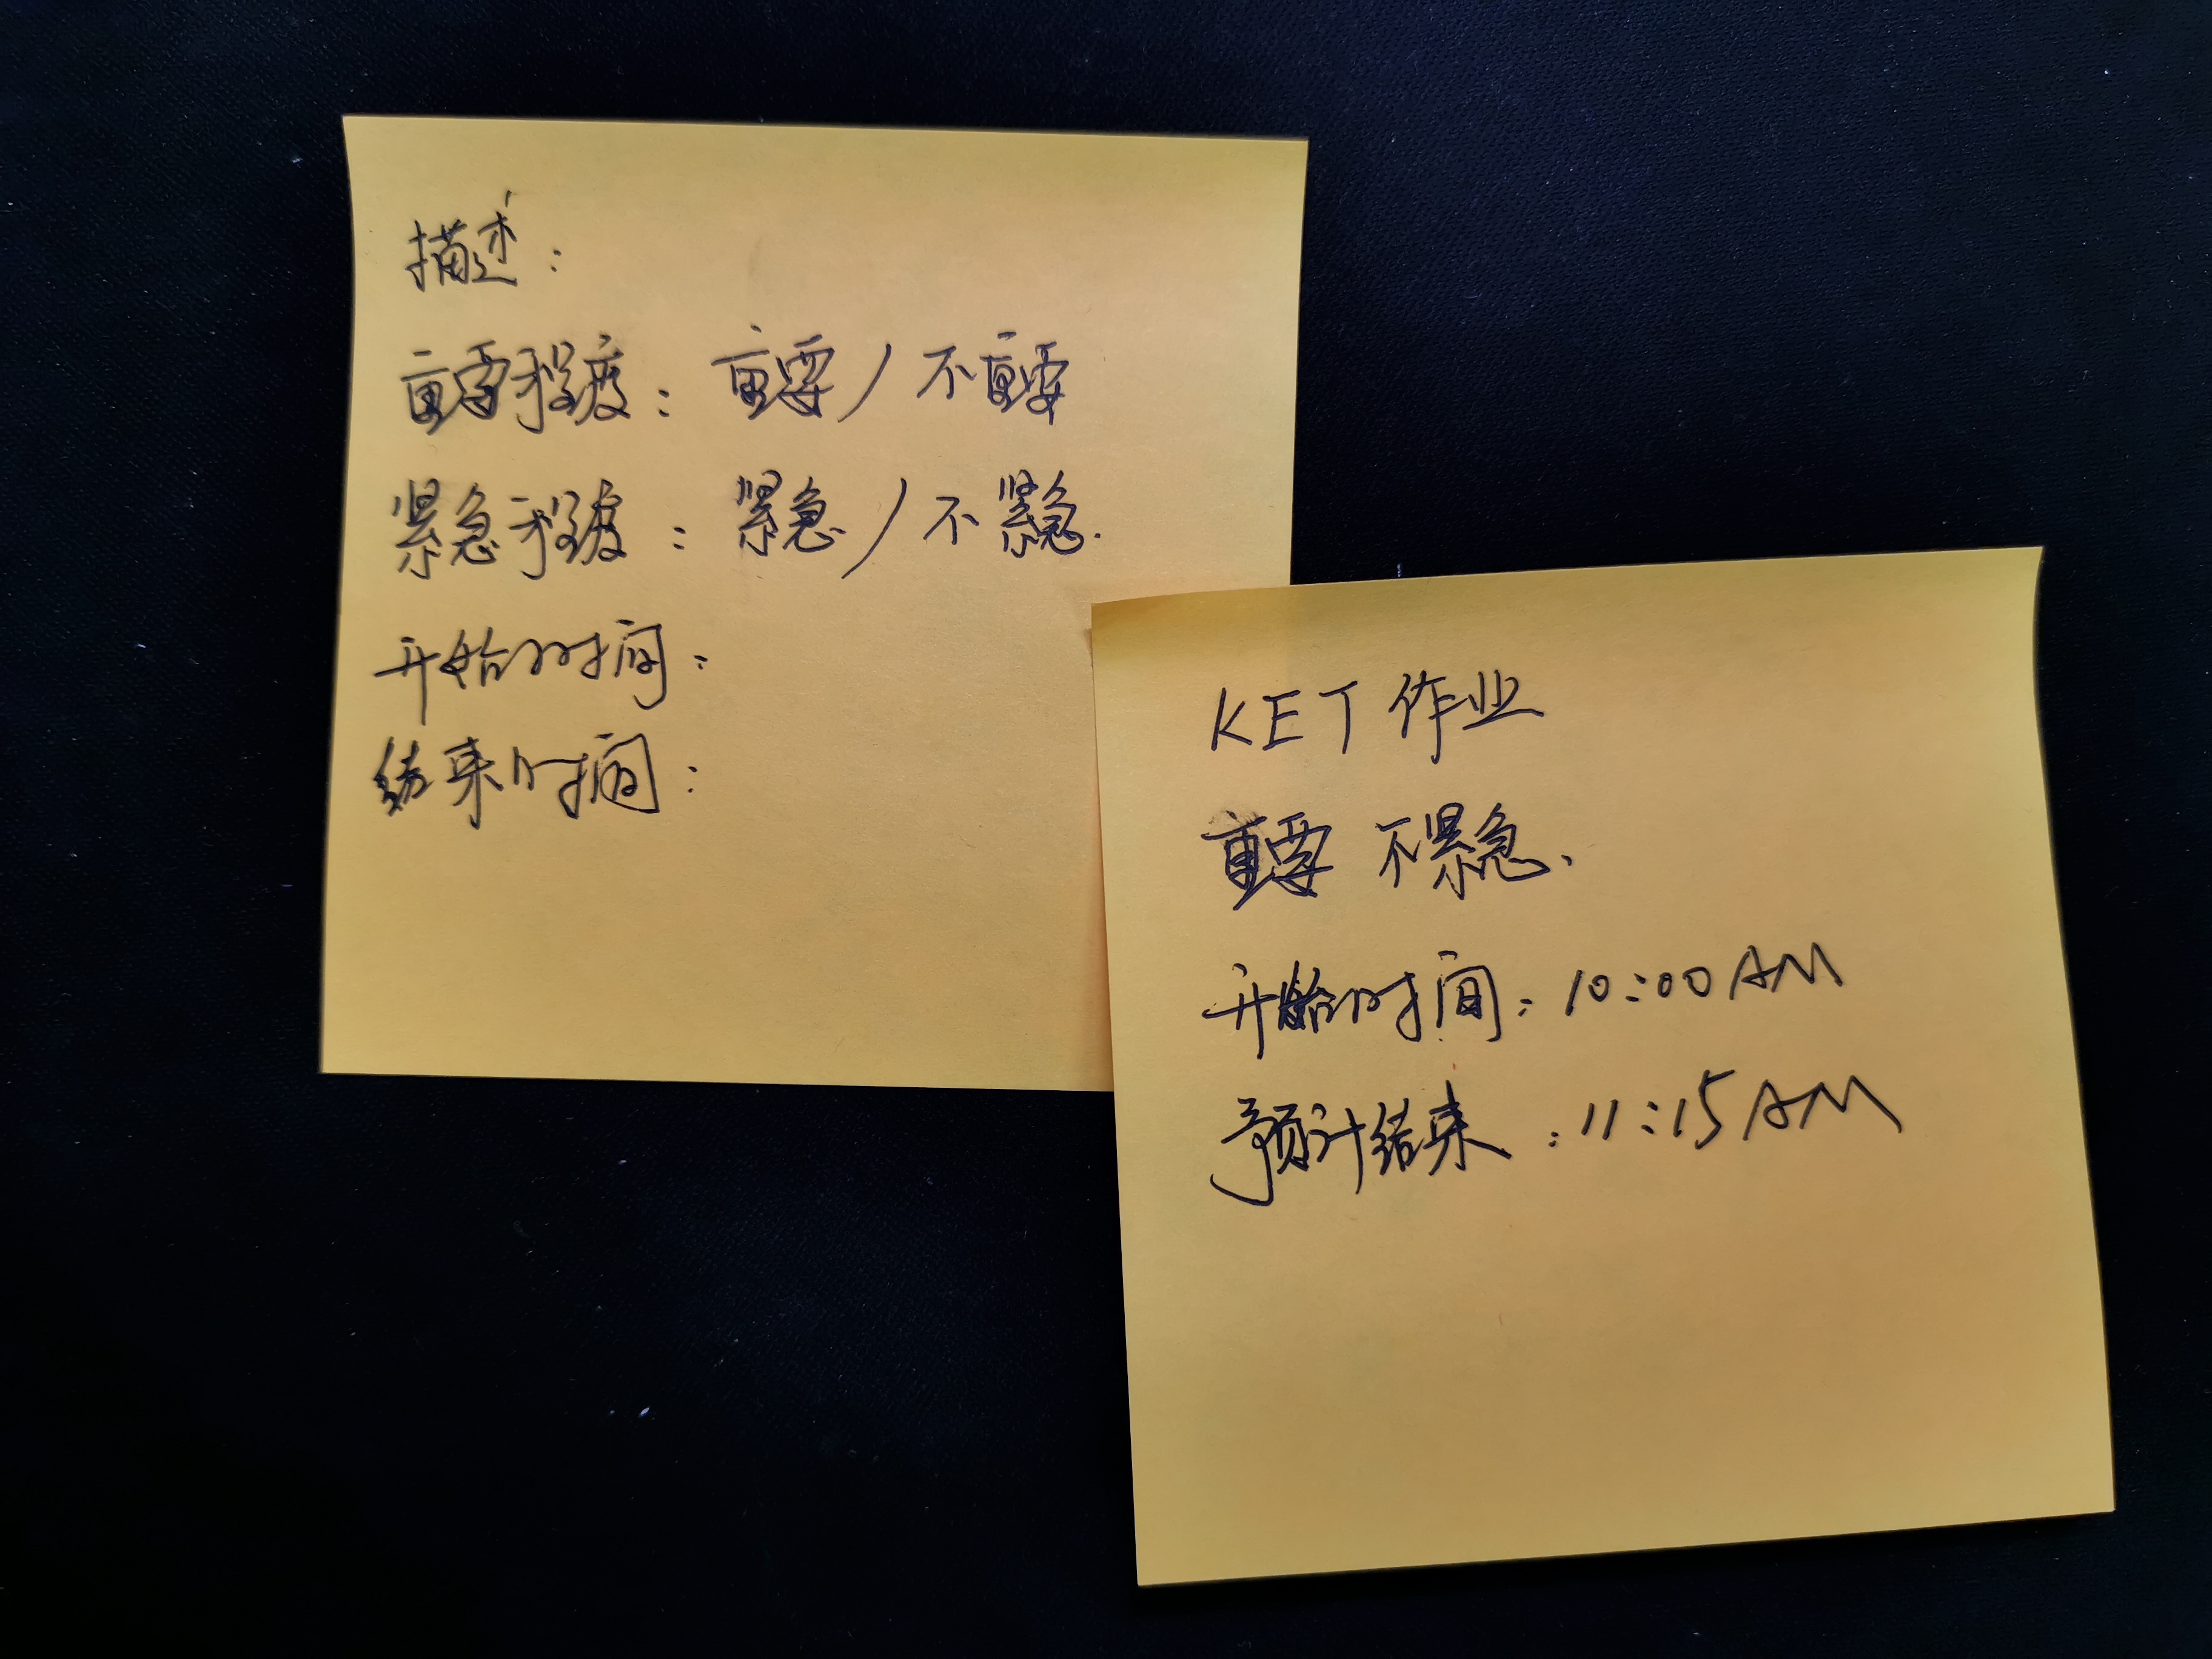 描述：
重要程度：重要/不重要
紧急程度：紧急/不紧急.
开始时间：
结束时间：
KET 作业
重要 不紧急.
开始时间：10:00 AM
预计结束：11:15 AM